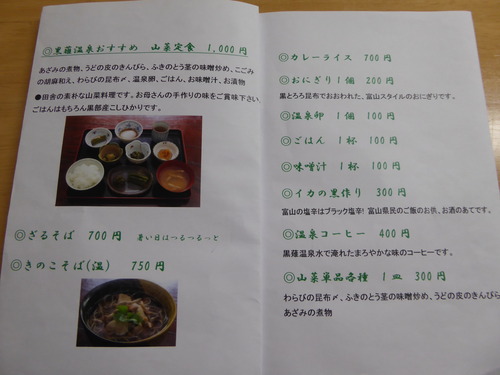 ◎黒薙温泉おすすめ 山菜定食 1,000円
あざみの煮物、うどの皮のきんぴら、ふきのとう茎の味噌炒め、こごみ
の胡麻和え、わらびの昆布〆、温泉卵、ごはん、お味噌汁、お漬物
●田舎の素朴な山菜料理です。お母さんの手作りの味をご賞味下さい、
ごはんはもちろん黒部産こしひかりです。
◎ざるそば 700円 暑い日はつるつるっと
◎きのこそば(温) 750円
◎カレーライス 700円
◎おにぎり1個 200円
黒とろろ昆布でおおわれた、富山スタイルのおにぎりです。
◎温泉卵 1個 100円
◎ごはん 1杯 100円
◎味噌汁 1杯 100円
◎イカの黒作り 300円
富山の塩辛はブラック塩辛!富山県民のご飯のお供、お酒のあてです。
◎温泉コーヒー 400円
黒薙温泉水で淹れたまろやかな味のコーヒーです。
◎山菜単品各種 1皿 300円
わらびの昆布〆、ふきのとう茎の味噌炒め、うどの皮のきんぴら
あざみの煮物